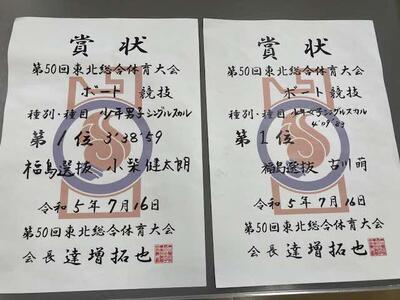 賞状
第50回東北総合体育大会
ボート 競技
種別・種目 少年男子シングルスカル
第1位 3'38"59
福島選抜 小柴健太朗
令和5年7月16日
第50回東北総合体育大会
会長 達増拓也
賞状
第50回東北総合体育大会
ボート 競技
種別・種目 少年女子シングルスカル
第1位 4'09"83
福島選抜 古川萌
令和5年7月16日
第50回東北総合体育大会
会長 達増拓也